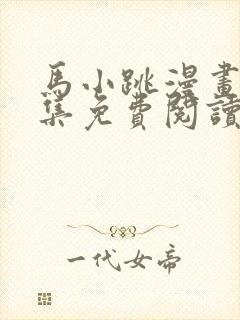 馬小跳漫畫
集免費閱讀
一代女帝